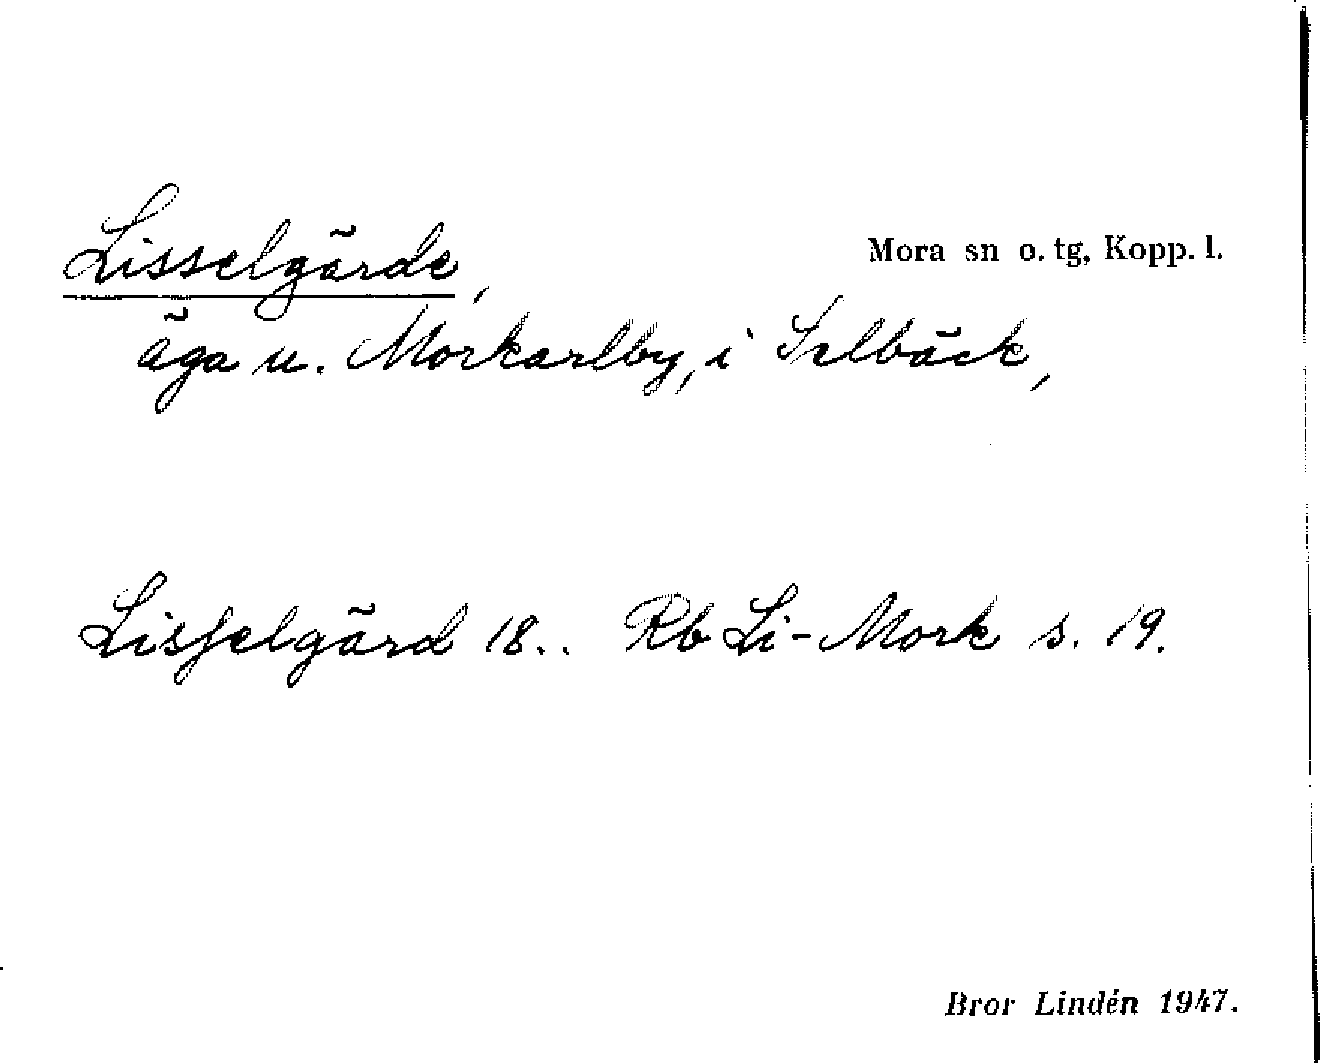 Lisselgärde,
Mora sn o. tg, Kopp. l.
äga u. Morkarlby, i Selbäck,
Lisselgärd 18.. Rb Li-Mork s. 19.
Bror Lindén 1947.